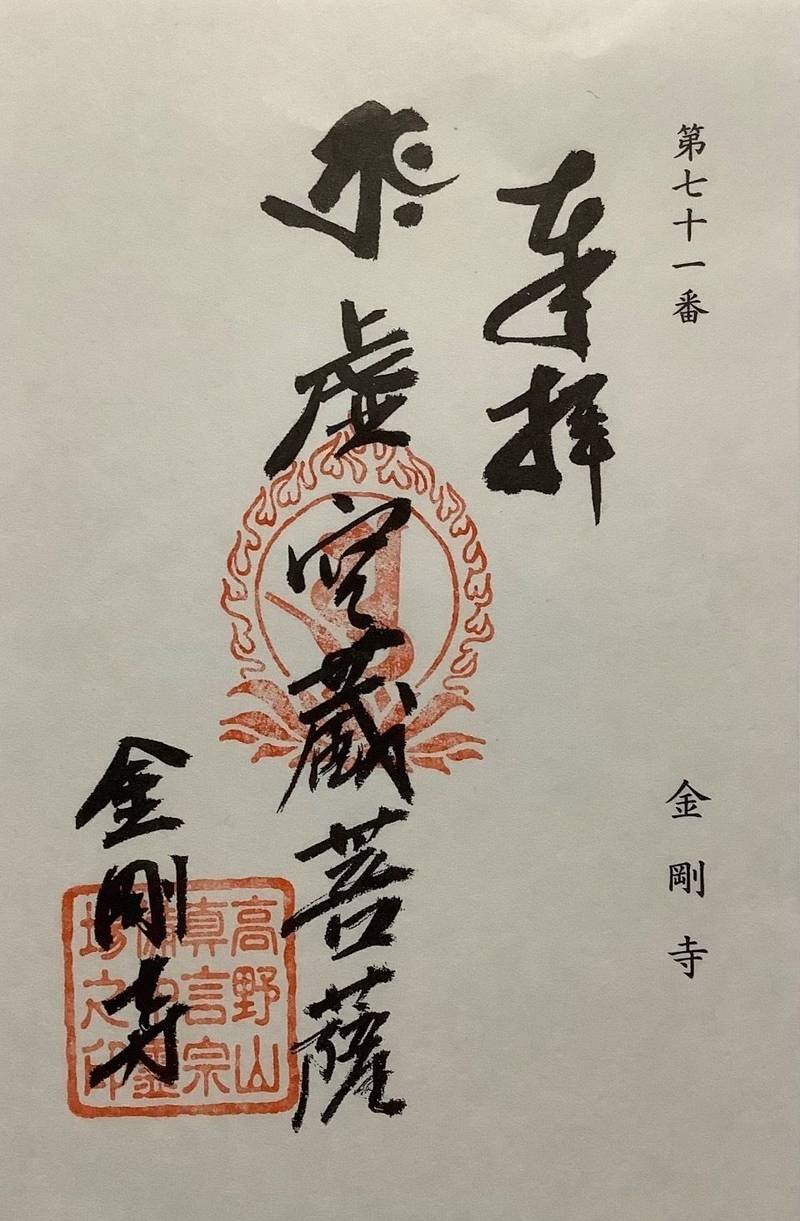 第七十一番
金剛寺
奉拝
虚空蔵菩薩
金剛寺
高野山
真言宗
場之印